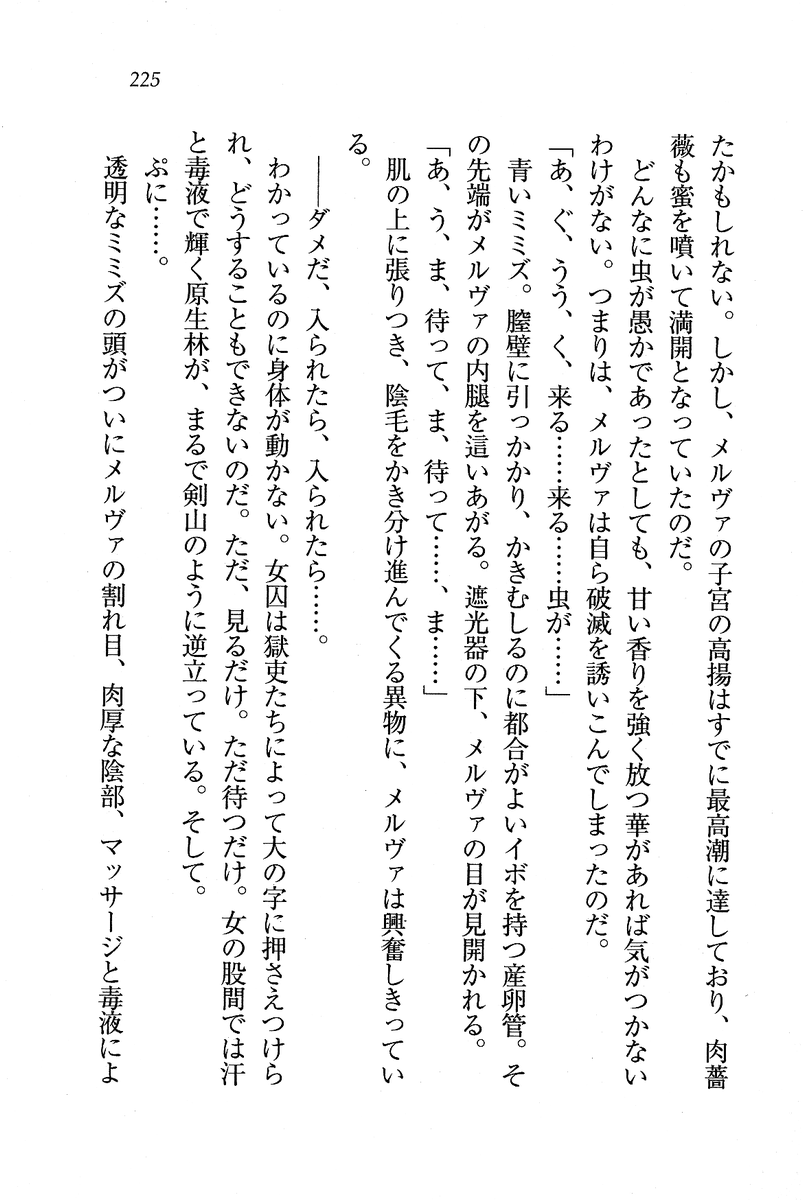 225
たかもしれない。しかし、メルヴァの子宮の高揚はすでに最高潮に達しており、肉薔
薇も蜜を噴いて満開となっていたのだ。
どんなに虫が愚かであったとしても、甘い香りを強く放つ華があれば気がつかない
わけがない。つまりは、メルヴァは自ら破滅を誘いこんでしまったのだ。
「あ、ぐ、うう、く、来る……来る……虫が……」
青いミミズ。膣壁に引っかかり、かきむしるのに都合がよいイボを持つ産卵管。そ
の先端がメルヴァの内腿を這いあがる。遮光器の下、メルヴァの目が見開かれる。
「あ、う、ま、待って、ま、待って……、ま……」
肌の上に張りつき、陰毛をかき分け進んでくる異物に、メルヴァは興奮しきってい
る。
――ダメだ、入られたら、入られたら……。
わかっているのに身体が動かない。女囚は獄吏たちによって大の字に押さえつけら
れ、どうすることもできないのだ。ただ、見るだけ。ただ待つだけ。女の股間では汗
と毒液で輝く原生林が、まるで剣山のように逆立っている。そして。
ぷに……。
透明なミミズの頭がついにメルヴァの割れ目、肉厚な陰部、マッサージと毒液によ